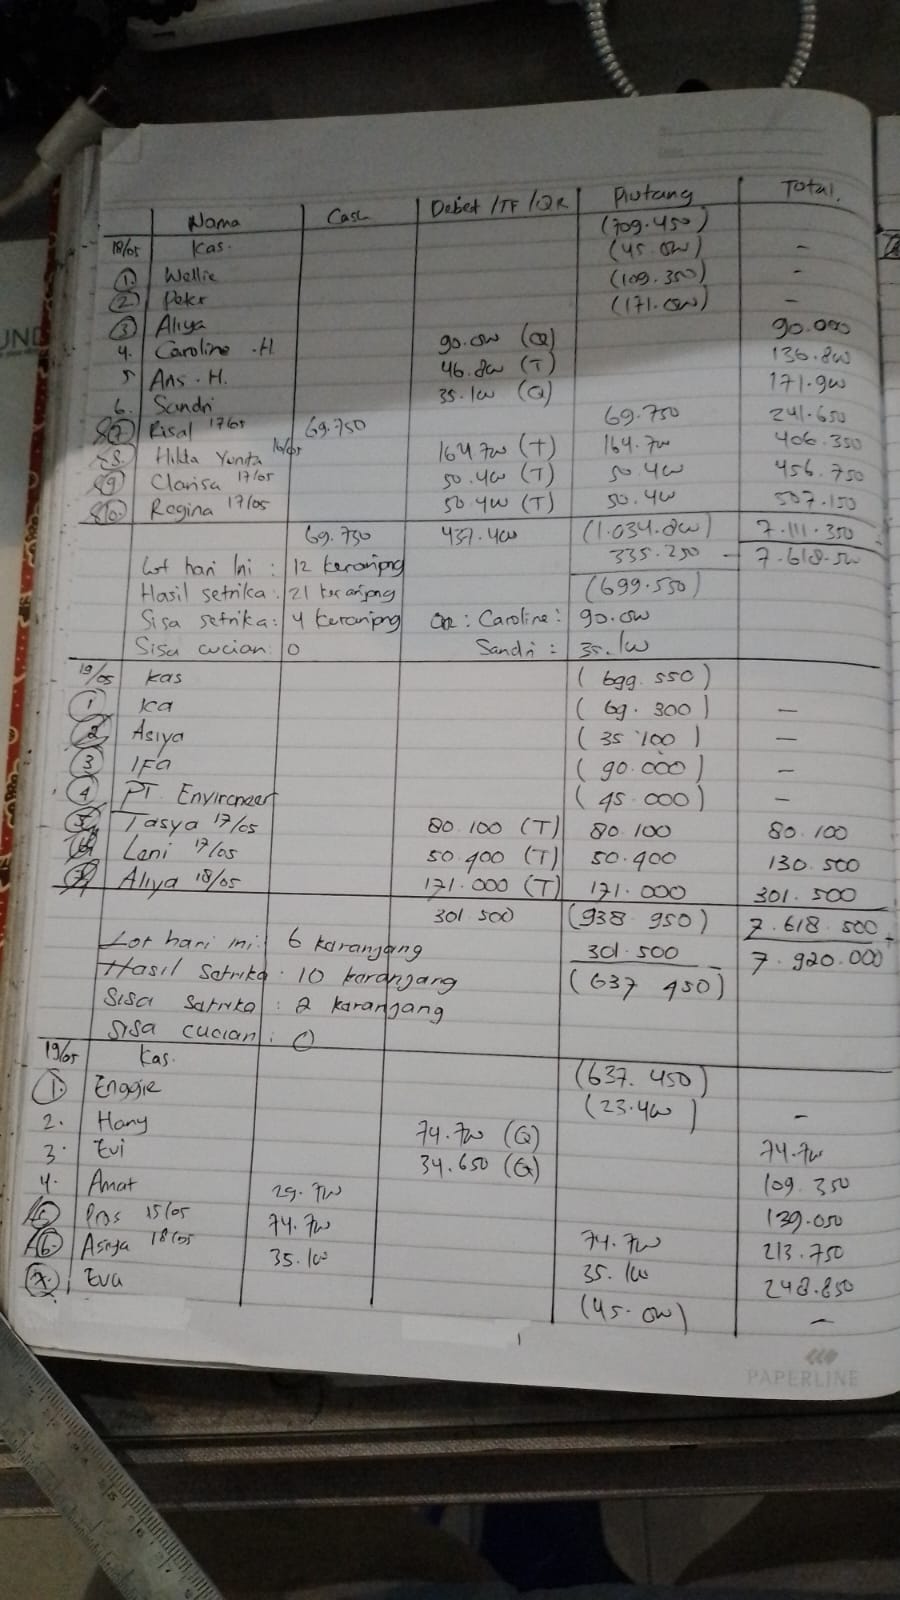 Nama Cash Debet/TF/QR Piutang Total.
18/05 Kas. (709.450)
1. Wellie (45.000) -
2 Peter (109.350) -
3 Aliya (171.000) -
4. Caroline .H 90.000 (Q) 90.000
5 Ans . H. 46.800 (T) 136.800
6. Sandri 35.100 (Q) 171.900
7 Risal 17/05 69.750 69.750 241.650
8. Hilda Yunita 16/05 164.700 (T) 164.700 406.350
9 Clarisa 17/05 50.400 (T) 50.400 456.750
10. Regina 17/05 50.400 (T) 50.400 507.150
69.750 437.400 (1.034.800) 7.111.350
335.250 - 7.618.500
Lot hari ini : 12 keranjang (699.550)
Hasil setrika : 21 keranjang
Sisa setrika : 4 keranjang QR : Caroline : 90.000
Sisa cucian : 0 Sandri = 35.100
19/05 kas (699.550)
1 Ka (69.300) -
2 Asiya (35.100) -
3 IFa (90.000) -
4 PT. Environeer (45.000) -
5 Tasya 17/05 80.100 (T) 80.100 80.100
6 Leni 17/05 50.400 (T) 50.400 130.500
7 Aliya 18/05 171.000 (T) 171.000 301.500
301.500 (938.950) 7.618.500 +
Lot hari ini : 6 karanjang 301.500 - 7.920.000
Hasil Satrika : 10 karanjang (637.450)
Sisa satrika : 2 karanjang
Sisa cucian : 0
19/05 Kas. (637.450)
1. Enggie (23.400) -
2. Hany 74.700 (Q) 74.700
3. Evi 34.650 (Q) 109.350
4. Amat 29.700 139.050
5. 15/05 74.700 74.700 213.750
6. Asiya 18/05 35.100 35.100 248.850
7. Eva (45.000) -
PAPERLINE